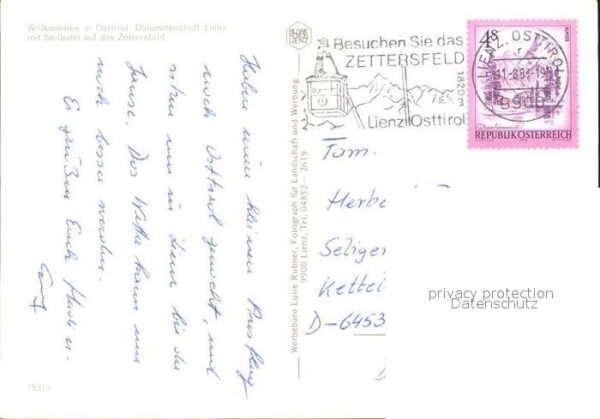 Willkommen in Osttirol. Dolomitenstadt Lienz
mit Seilbahn auf das Zettersfeld
Haben einen kleinen Ausflug
nach Osttirol gemacht, und
sitzen nun in Lienz bei der
Jause. Das Wetter kann nur
noch besser werden.
Es grüßen Euch Heidi u.
Ernst
18319
Werbebüro Luise Rubner, Fotograph für Landschaft und Werbung
9900 Lienz, Tel. 04852 - 2619
Besuchen Sie das
ZETTERSFELD
1820m
Lienz/Osttirol
LIENZ, OSTTIROL
9900
4S
REPUBLIK ÖSTERREICH
Fam.
Herbe
Seliger
Kettel
D-6453
privacy protection
Datenschutz